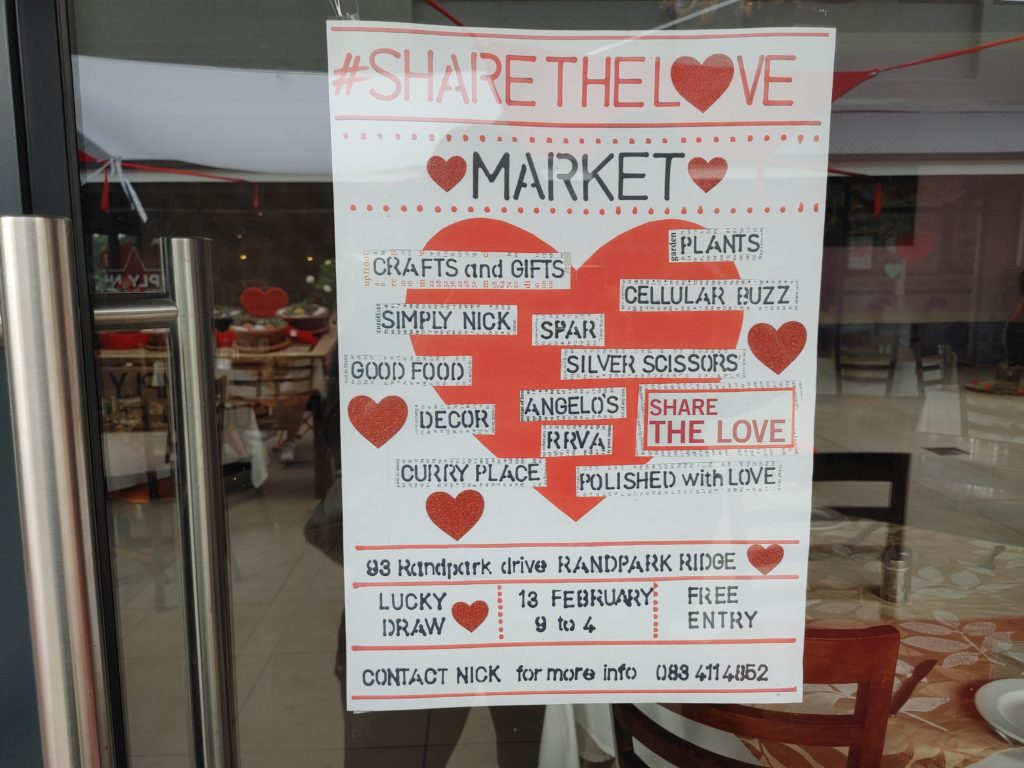 #SHARETHELOVE
MARKET
CRAFTS and GIFTS
garden PLANTS
CELLULAR BUZZ
SIMPLY NICK
SPAR
GOOD FOOD
SILVER SCISSORS
ANGELO'S
DECOR
SHARE
THE LOVE
RRVA
CURRY PLACE
POLISHED with LOVE
93 Randpark drive RANDPARK RIDGE
LUCKY
DRAW
13 FEBRUARY
9 to 4
FREE
ENTRY
CONTACT NICK for more info 083 4114852